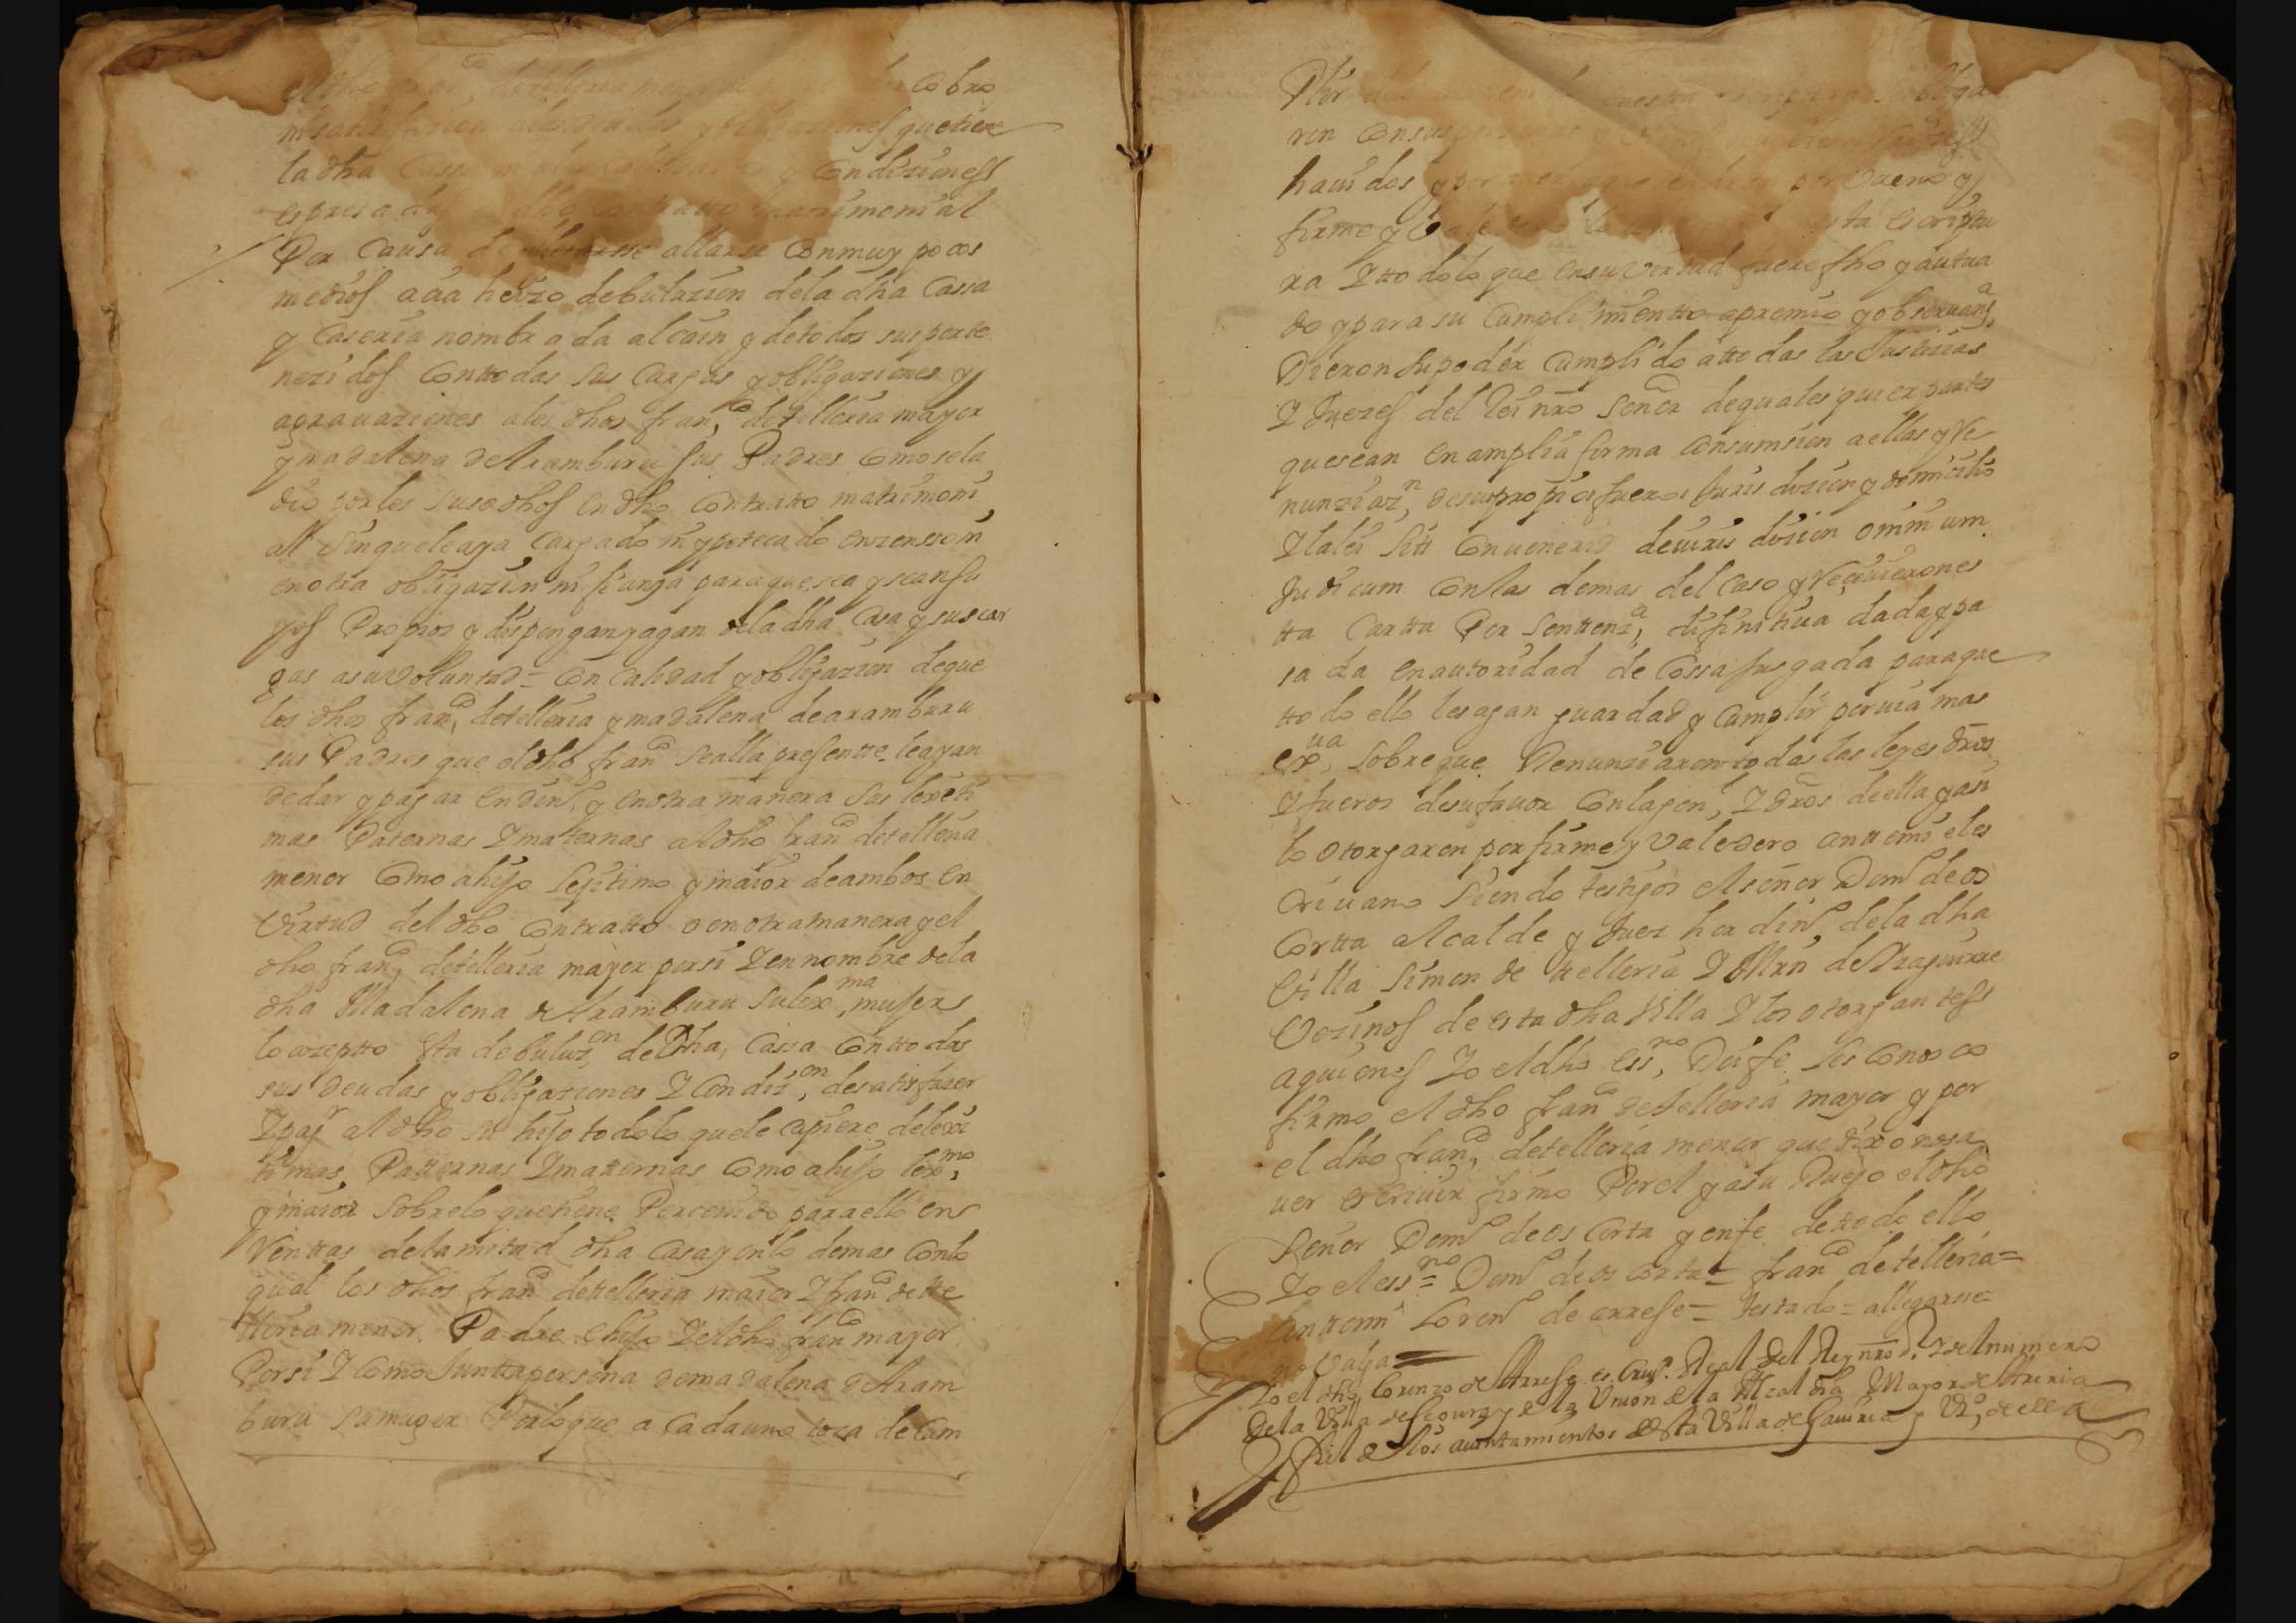 el dho fran.co de telleria mayor cobro
ni satisfacion deudas y obligaciones que tiene
la dha Cassa y Condiziones
espresadas dho contratto matrimonial
Por Causa de allarse Con muy pocos
medios aáa hehizo debuluzion dela dha Cassa
y Caseria nombrada alcain y detodos sus perte
nezidos Conttodas sus Cargas y obligaziones y
agrauaziones alos dhos fran.co de telleria mayor
y madalena de Aramburu sus Padres Como sela
dio por los susodhos en dho Contratto matrimoni
al sin quele aya Cargado ni ypotecado en zensso ni
en otra obligazion ni fianza para que sea y sean su
yos Propios y dispongan y agan de la dha Casa y sus car
gas asu Voluntad = Con Calidad y obligazion de que
los dhos fran.co de telleria y madalena de aramburu
sus Padres que el dho fran.co se alla presentte le ayan
de dar y pagar en din.o y en otra manera sus lexiti
mas Paternas Y maternas al dho fran.co de telleria
menor Como ahijo Lejitimo y maior de ambos en
Virtud del dho Contratto o en otra manera y el
dho fran.co de telleria mayor por si Y en nombre dela
dha Madalena de Aramburu su lex.ma mujer
lo azeptto Esta debuluz.on de dha Cassa Conttodas
sus deudas y obligaziones Y Condiz.on de satisfazer
Y pag.r al dho su hijo todo lo que le Cupiere de lexi
timas Patternas Y matternas Como ahijo lex.mo
y maior sobre lo que tiene Perceuido para ello en
Venttas dela mitad dha Casa y en lo demas Con lo
qual los dhos fran.co de telleria maior Y fran.co de tte
lleria menor Padre e hijo Y el dho fran.co mayor
Por si Y Como Juntta persona de madalena de Aram
buru su muger Por lo que a Cada uno toca de Cum
Plir nesta escriptura se obliga
ron Con sus personas
hauidos y por por Vueno y
firme y Valedero esta escriptu
ra Y ttodo lo que en su Virtud fuere fho y autua
do y para su Cumplimientto apremio y obseruan.a
Dieron su poder Cumplido a ttodas las Justizias
Y Juezes del Rei nro Señor de quales quier partes
que sean en amplia forma Con sumsion a ellas y Re
nunziaz.n de su propio fuero Jurisdizion y domicilio
Y la lei Sitt Conuenerid de iurisdizion omnium
Judicum Con las demas del Caso y Reciuieron es
tta Cartta Por Senttenz.a difinitiua dada y pa
sada en autoridad de Cossa Jusgada para que
ttodo ello les agan guardad y Cumplir por via mas
ex.ua sobre que Renunziaron todas las leyes dros
Y fueros de su fauor Con la gen.l Y dros de ella y asi
lo otorgaron por firme y Valedero antte mi el es
criuano Siendo testigos el señor Dom.o de os
Cortta alcalde y Juez hordin.o de la dha
Villa Simon de ttelleria Y Mrn de Yzaguirre
Vezinos de esta dha Villa Y los otorgantes
aquienes Yo el dho ess.no Doi fe les Conozco
firmo el dho fran.co de telleria mayor y por
el dho fran.co de telleria menor que dixo no sa
uer escriuir firmo Por el y a su Ruego el dho
Señor Dom.o de os Corta y en fe de ttodo ello
Yo el ess.no = Dom.o de os Corta = fran.co de telleria =
Antte mi Loren.o de arrese = testado = allegarsse =
no Valga =
Yo el dho Lorenzo de Arrese es Criu.o Real del Rey nro s.r y del numero
De la Villa de Segura y de la Vnion de la Alcaldia Mayor de Areria
y fiel de los aiuntamientos de esta Villa de Gauiria y Vz.o de ella